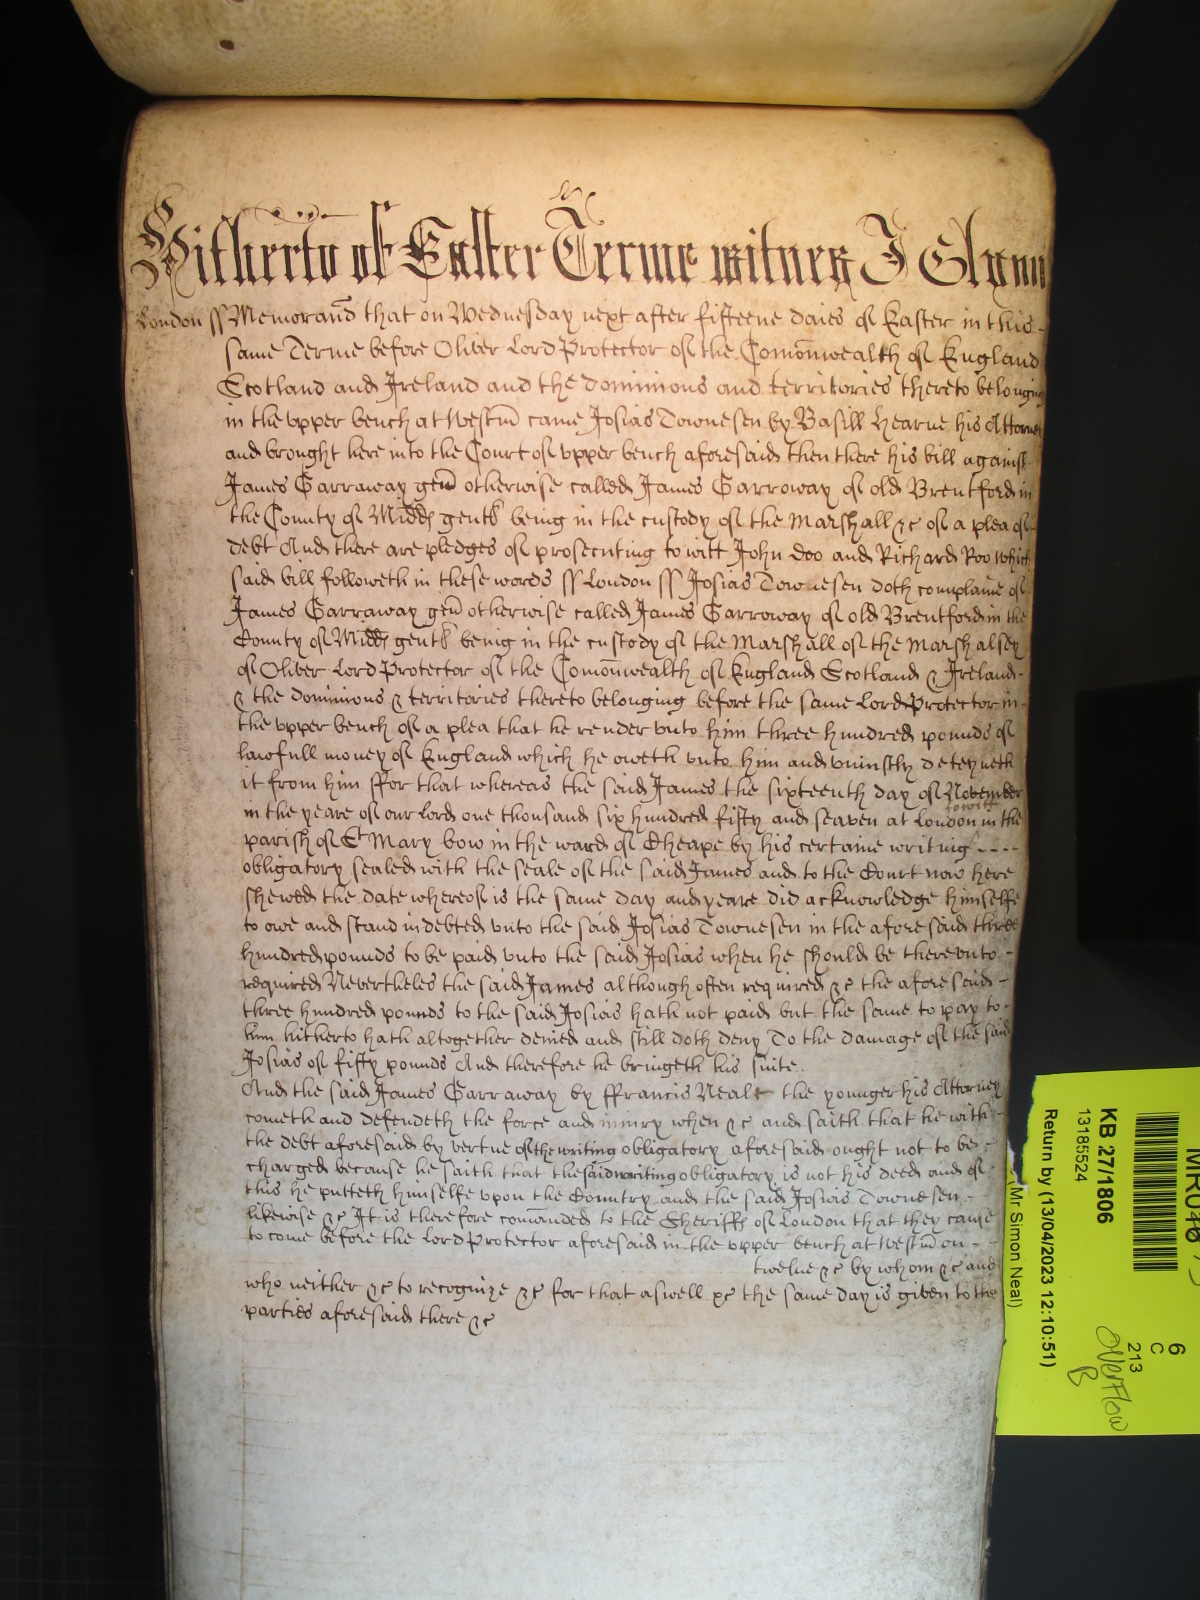 Hitherto of Easter Terme witnes J Glynn
London ss Memorand that on Wednesday next after fifteene daies of Easter in this
same Terme before Oliver Lord Protector of the Comonwealth of England
Scotland and Ireland and the dominions and territories thereto belonging
in the vpper bench at Westm came Josias Townesen by Basill Hearne his Attorney
and brought here into the Court of vpper bench aforesaid then there his bill against
James Garraway gen otherwise called James Garroway of old Brentford in
the County of Midd gent being in the custody of the Marshall &c of a plea of
debt And there are pledges of prosecuting to witt John Doo and Richard Roo Which
said bill followeth in these words ss London ss Josias Townesen doth complaine of
James Garraway gen otherwise called James Garroway of old Brentford in the
County of Midd gent being in the custody of the Marshall of the Marshalsey
of Oliver Lord Protector of the Comonwealth of England Scotland & Ireland
& the dominions & territories thereto belonging before the same Lord Protector in
the vpper bench of a plea that he render vnto him three hundred pounds of
lawfull money of England which he oweth vnto him and vniustly deteyneth
it from him ffor that whereas the said James the sixteenth day of November
in the yeare of our Lord one thousand six hundred fifty and seaven at London to witt in the
parish of St Mary bow in the ward of Cheape by his certaine writing
obligatory sealed with the seale of the said James and to the Court now here
shewed the date whereof is the same day and yeare did acknowledge himselfe
to owe and stand indebted vnto the said Josias Townesen in the aforesaid three
hundred pounds to be paid vnto the said Josias when he should be therevnto
required Nevertheles the said James although often required &c the aforesaid
three hundred pounds to the said Josias hath not paid but the same to pay to
him hitherto hath altogether denied and still doth deny To the damage of the said
Josias of fifty pounds And therefore he bringeth his suite.
And the said James Garraway by ffrancis Neale the younger his Attorney
cometh and defendeth the force and iniury when &c and saith that he with
the debt aforesaid by vertue of the writing obligatory aforesaid ought not to be
charged because he saith that the said writing obligatory is not his deed and of
this he putteth himselfe vpon the Country and the said Josias Townesen
likewise &c It is therefore comanded to the Sheriffs of London that they cause
to come before the Lord Protector aforesaid in the vpper bench at Westm on
twelue &c by whom &c and
who neither &c to recognize &c for that aswell &c the same day is given to the
parties aforesaid there &c
KB 27/1806
13185524
Return by (13/04/2023 12:10:51)
(Mr Simon Neal)
6
C
213
Overflow
B